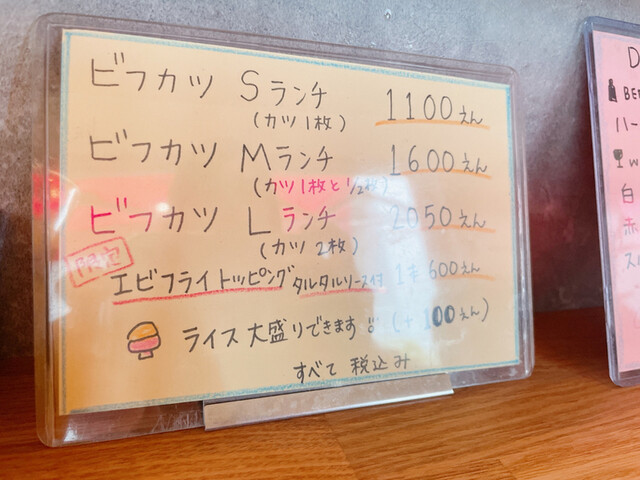 ビフカツ Sランチ 1100えん
(カツ1枚)
ビフカツ Mランチ 1600えん
(カツ1枚と1/2枚)
ビフカツ Lランチ 2050えん
(カツ2枚)
限定
エビフライトッピング タルタルソース付 1本600えん
ライス大盛りできます (+100えん)
すべて税込み
D
BE
ハー
W
白
赤
ス